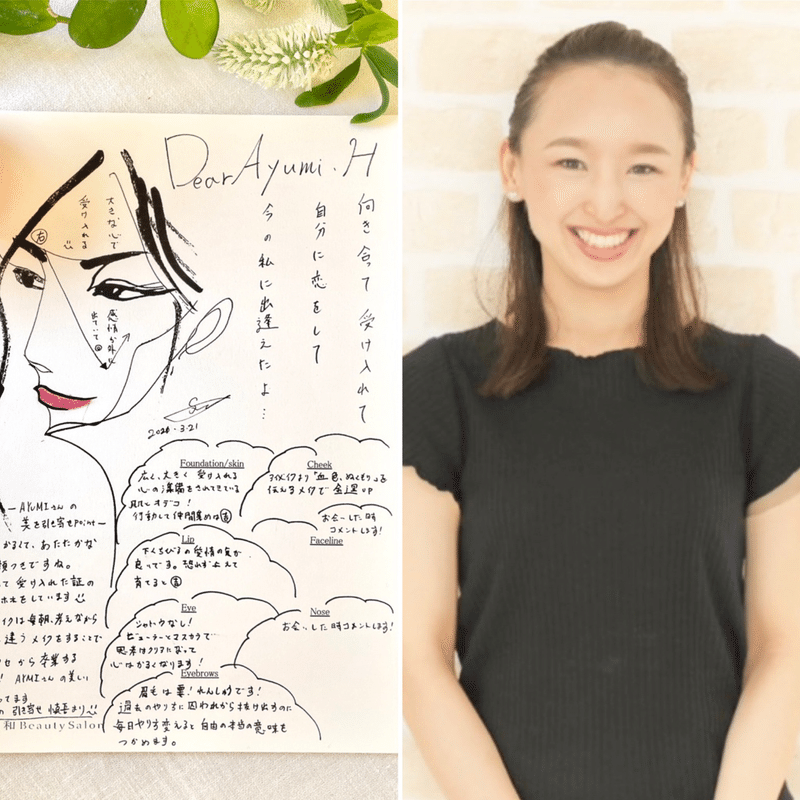 Dear Ayumi.H
向き合って 受け入れて
自分に恋をして
今の私に出逢えたよ…
大きな心で
受け入れる
右
感情が外に
出ていて
2021.3.21
Foundation/skin
広く、大きく 受け入れる
心の準備をされてきている
肌とオデコ!
行動して仲間集めは吉
Cheek
アイメイクより「血色、ぬくもり」を
伝えるメイクで 金運UP
お会いした時
コメントします!
Faceline
Lip
下くちびるの愛情の気が
良っです。恐れず与えて
育てると吉
Eye
シャドウなし!
ビューラーとマスカラで
思考はクリアになって
心はかるくなります!
Nose
お会いした時コメントします!
Eyebrows
眉毛は要!れんしゅうです!
過去のやり方に囚われから抜け出すのに
毎日やり方変えると自由の本当の意味を
つかめます。
AYUMIさんの
美を引き寄せPoint
かるくて、あたたかな
顔つきですね。
て受け入れた証の
ホネをしています
イクは毎朝、考えながら
違うメイクをすることで
セから卒業する
! AYUMIさんの美しい
ってます
の引き寄せ
和 Beauty Salon